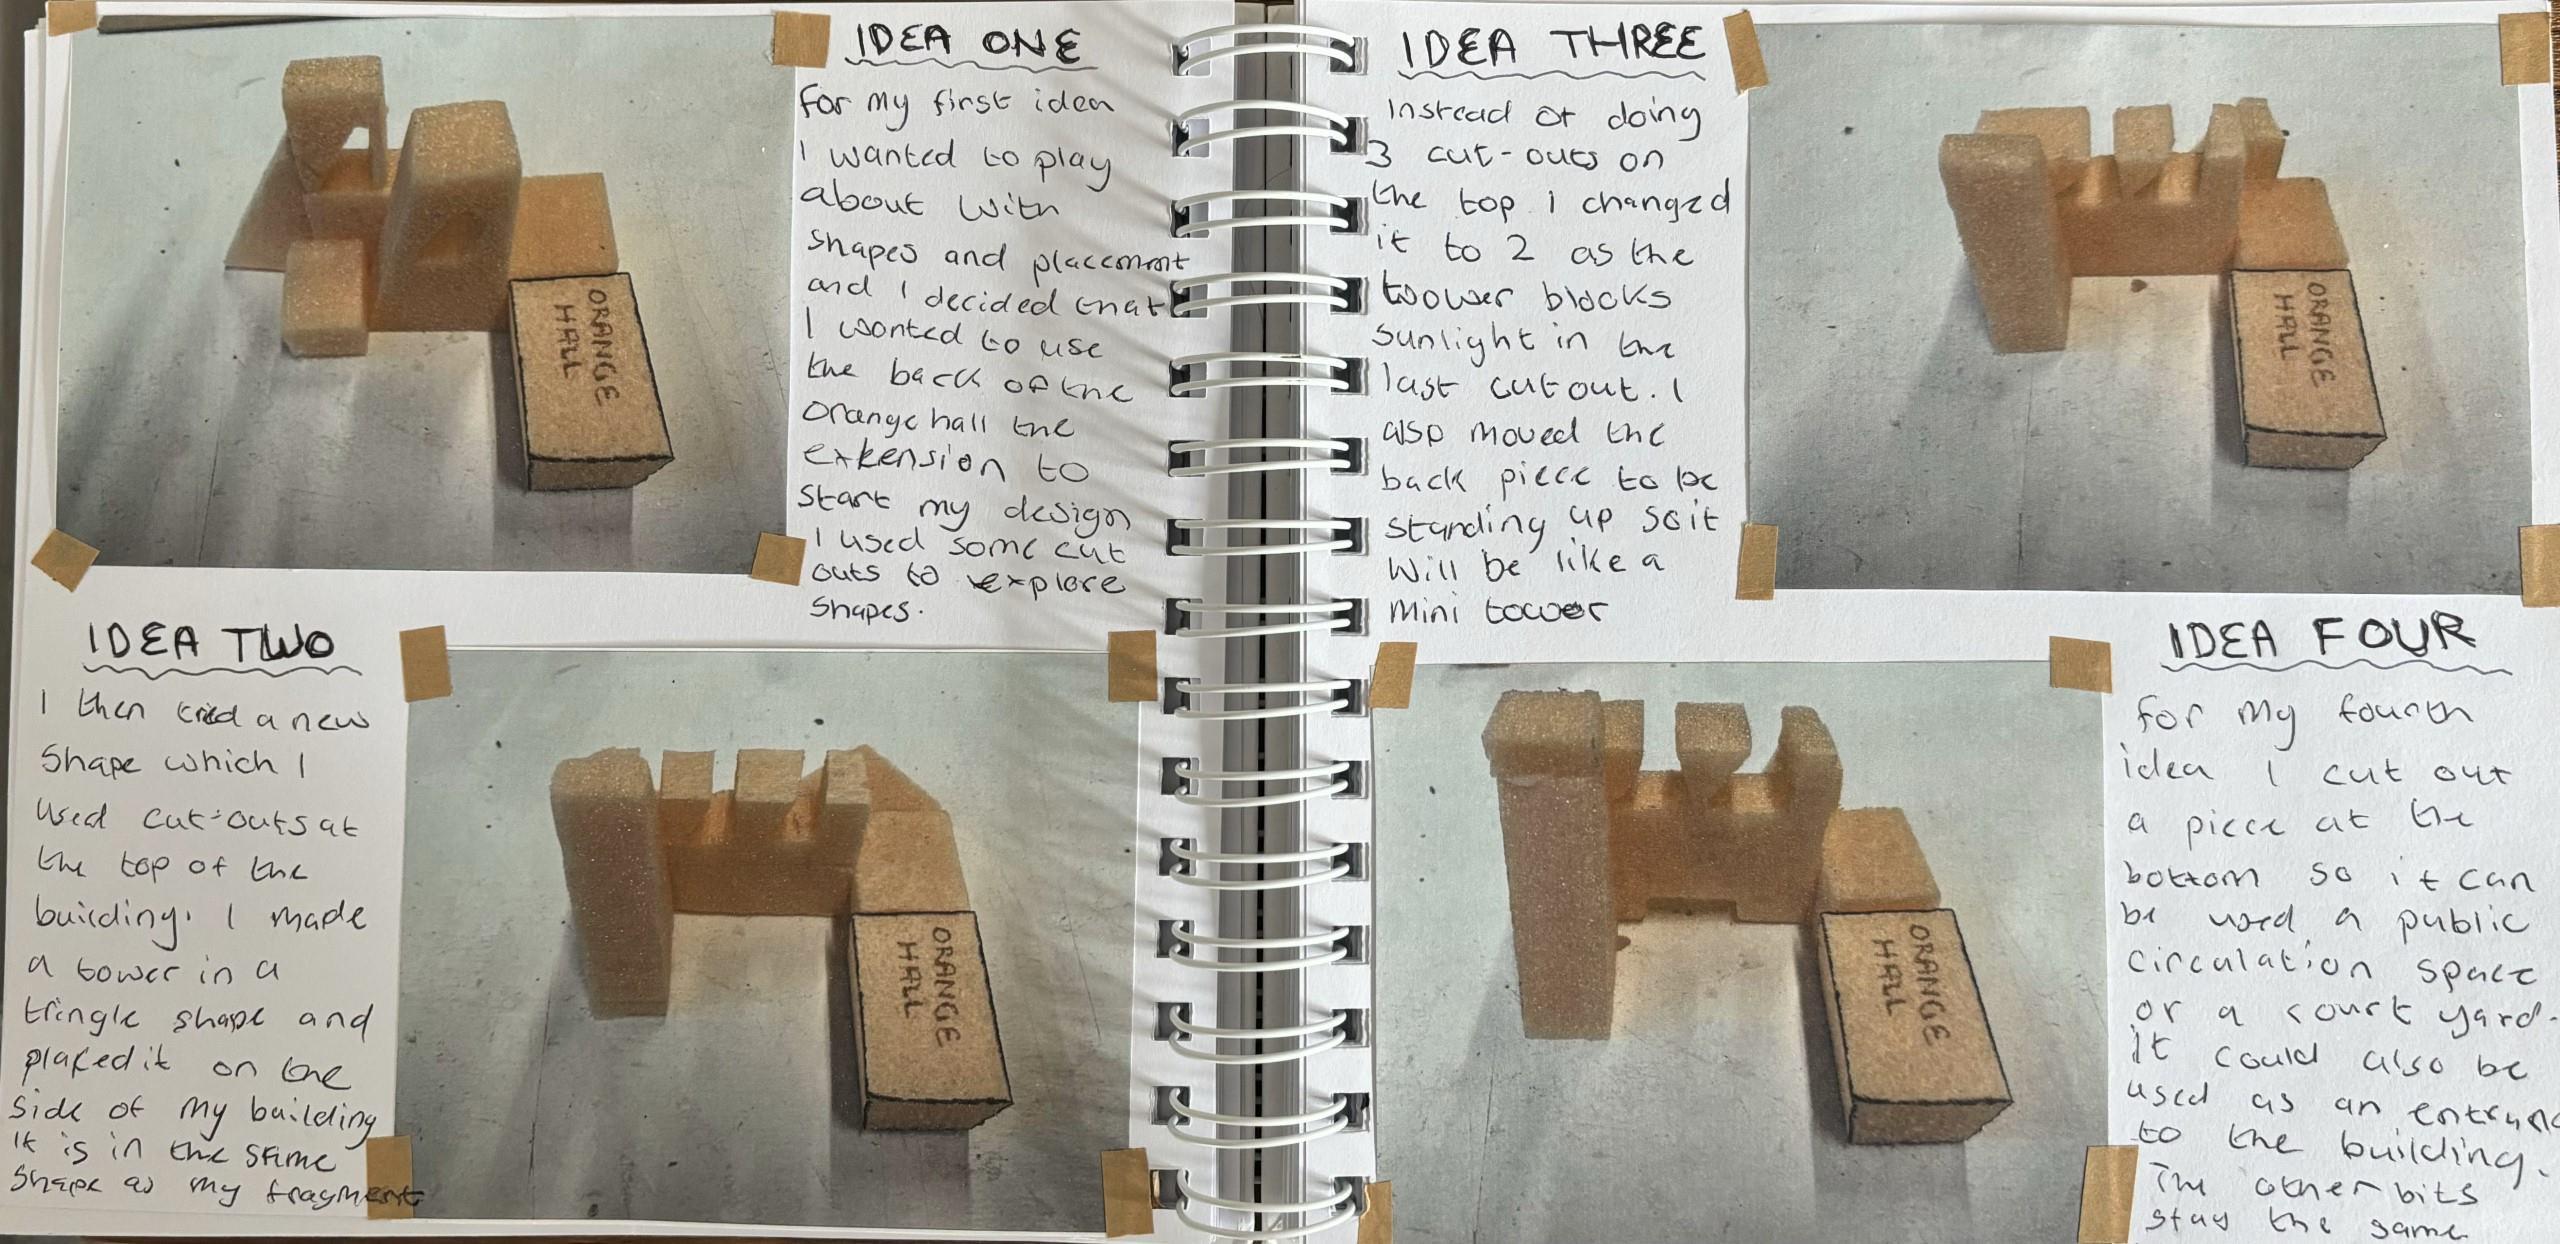 IDEA ONE
for my first idea
I wanted to play
about with
shapes and placement
and I decided that
I wanted to use
the back of the
orange hall the
extension to
start my design
I used some cut
outs to explore
shapes.
ORANGE
HALL
IDEA TWO
I then tried a new
shape which I
used cut-outs at
the top of the
building. I made
a tower in a
tringle shape and
placed it on the
side of my building
it is in the same
shape as my fragment
ORANGE
HALL
IDEA THREE
Instead of doing
3 cut-outs on
the top I changed
it to 2 as the
toower blocks
sunlight in the
last cut out. I
also moved the
back piece to be
standing up so it
will be like a
mini tower
ORANGE
HALL
IDEA FOUR
for my fourth
idea I cut out
a piece at the
bottom so it can
be used a public
circulation space
or a court yard.
It could also be
used as an
to the building.
The other bits
stay the same
ORANGE
HALL